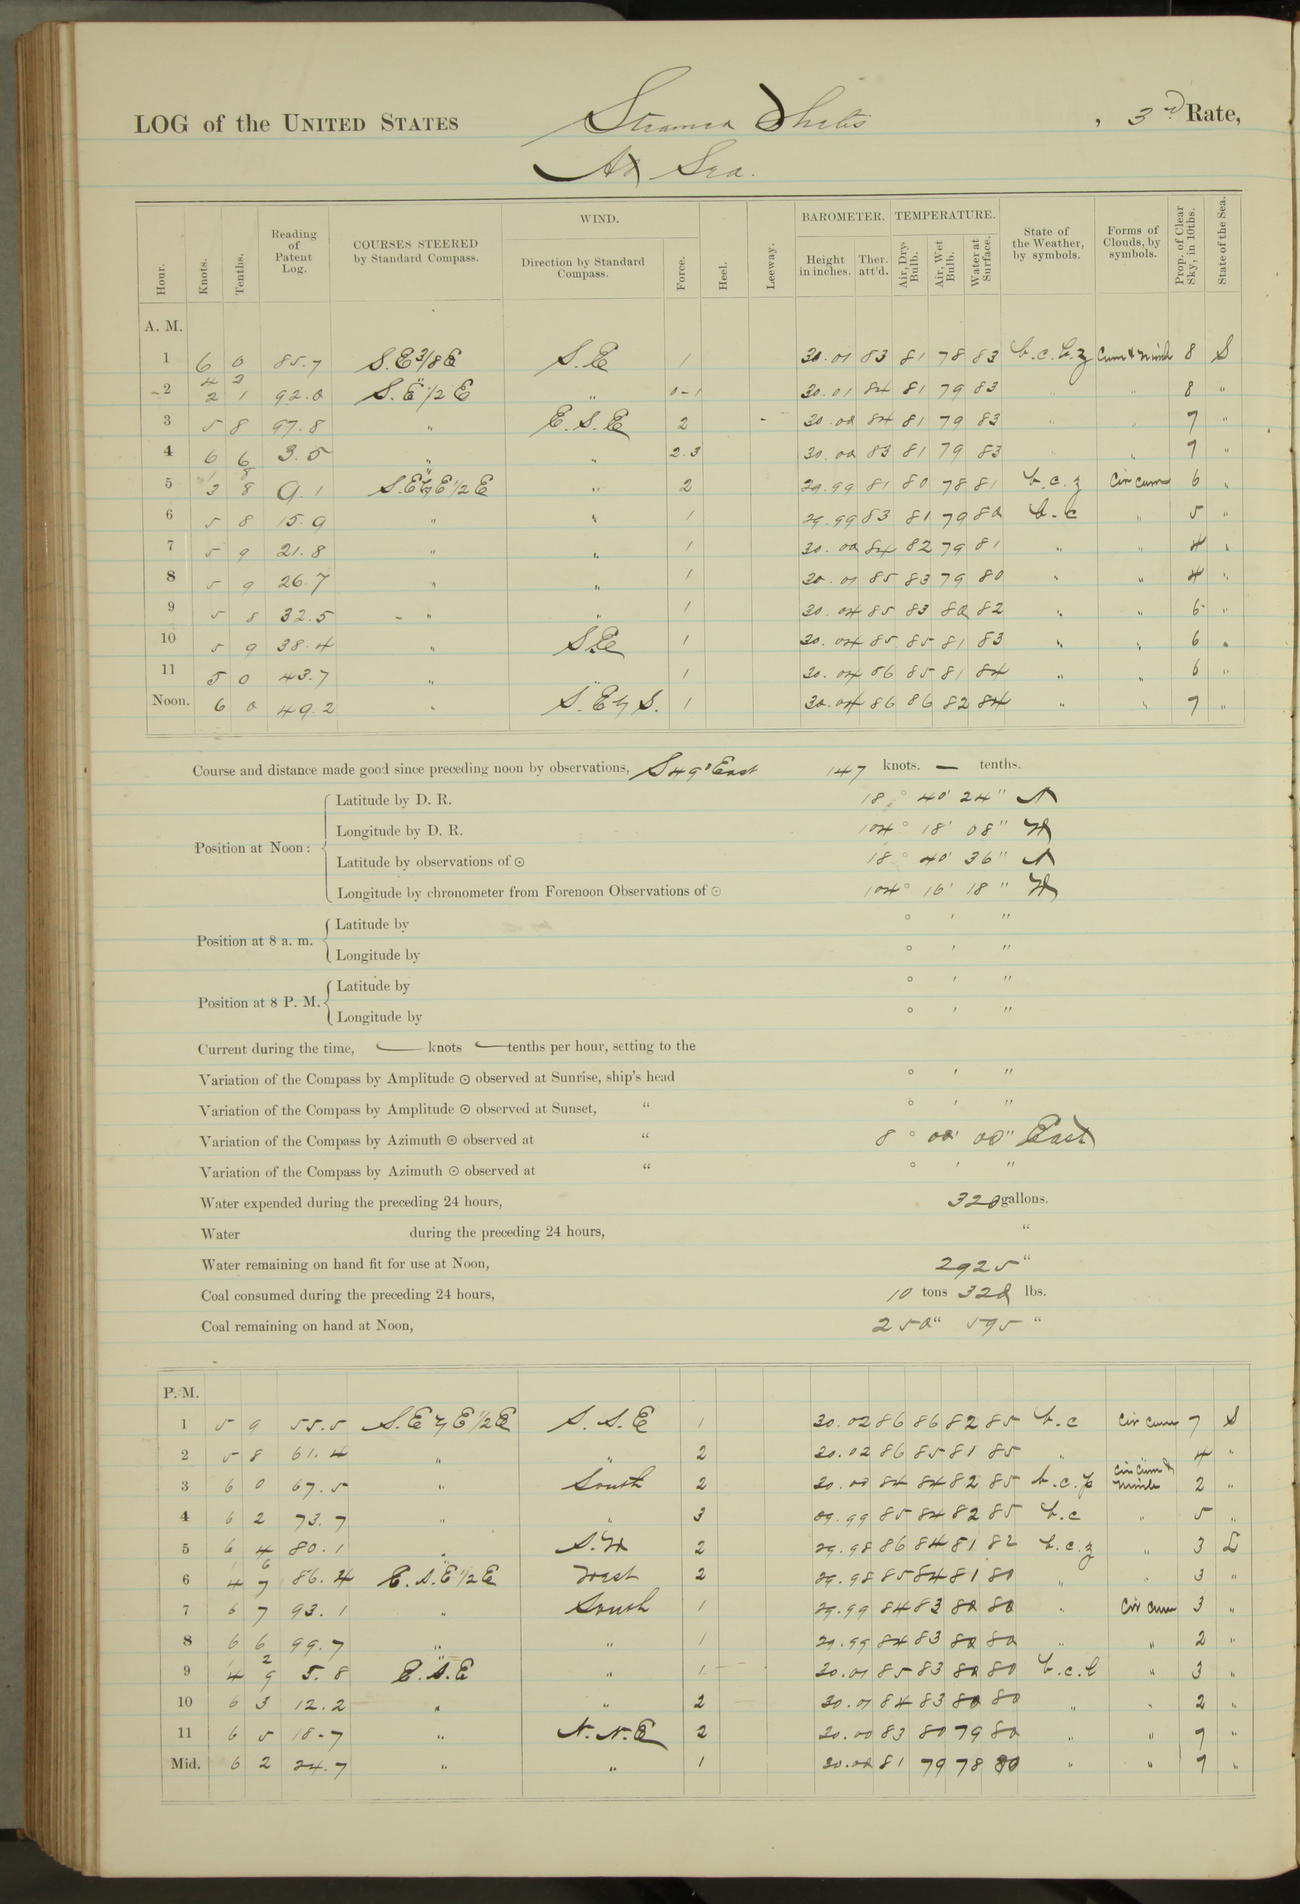 LOG of the UNITED STATES Steamer Thetis, 3rd Rate,
At Sea.
Hour. Knots. Tenths. Reading of Patent Log. COURSES STEERED by Standard Compass. WIND. Direction by Standard Compass. Force. Heel. Leeway. BAROMETER. Height in inches. Ther. att'd. TEMPERATURE. Air, Dry-Bulb. Air, Wet Bulb. Water at Surface. State of the Weather, by symbols. Forms of Clouds, by symbols. Prop. of Clear Sky, in 10ths. State of the Sea.
A. M.
1 6 0 85.7 S.E 3/8 E S.E 1 30.01 83 81 78 83 8 S
2 4 2 2 1 92.0 S.E 1/2 E " 0-1 30.01 84 81 79 83 " " 8 "
3 5 8 97.8 " E.S.E 2 30.00 84 81 79 83 " " 7 "
4 6 6 3.5 " " 2.3 30.00 83 81 79 83 " " 7 "
5 1 8 3 8 9.1 S.E by E 1/2 E " 2 29.99 81 80 78 81 b.c.z Cir cum 6 "
6 5 8 15.9 " " 1 29.99 83 81 79 80 b.c " 5 "
7 5 9 21.8 " " 1 30.00 84 82 79 81 " " 4 "
8 5 9 26.7 " " 1 30.01 85 83 79 80 " " 4 "
9 5 8 32.5 " " 1 30.04 85 83 80 82 " " 6 "
10 5 9 38.4 " S.E 1 30.04 85 85 81 83 " " 6 "
11 5 0 43.7 " " 1 30.04 86 85 81 84 " " 6 "
Noon. 6 0 49.2 " S.E by S. 1 30.04 86 86 82 84 " " 7 "
Course and distance made good since preceding noon by observations, S 49° East 147 knots. — tenths.
Position at Noon:
Latitude by D. R. 18° 40' 24" N
Longitude by D. R. 104° 18' 08" W
Latitude by observations of ☉ 18° 40' 36" N
Longitude by chronometer from Forenoon Observations of ☉ 104° 16' 18" W
Position at 8 a. m.
Latitude by ° ' "
Longitude by ° ' "
Position at 8 P. M.
Latitude by ° ' "
Longitude by ° ' "
Current during the time, — knots — tenths per hour, setting to the
Variation of the Compass by Amplitude ☉ observed at Sunrise, ship's head ° ' "
Variation of the Compass by Amplitude ☉ observed at Sunset, " ° ' "
Variation of the Compass by Azimuth ☉ observed at " 8° 00' 00" East
Variation of the Compass by Azimuth ☉ observed at " ° ' "
Water expended during the preceding 24 hours, 320 gallons.
Water during the preceding 24 hours, "
Water remaining on hand fit for use at Noon, 2925 "
Coal consumed during the preceding 24 hours, 10 tons 320 lbs.
Coal remaining on hand at Noon, 250 " 595 "
P. M.
1 5 9 55.5 S.E by E 1/2 E S.S.E 1 30.02 86 86 82 85 b.c Cir cum 7 S
2 5 8 61.4 " " 2 30.02 86 85 81 85 " " 4 "
3 6 0 67.5 " South 2 30.00 84 84 82 85 b.c.p Cir cum & nimb 2 "
4 6 2 73.7 " " 3 29.99 85 84 82 85 b.c " 5 "
5 6 4 80.1 " S.W 2 29.98 86 84 81 82 b.c.z " 3 L
6 1 6 4 7 86.4 E.S.E 1/2 E West 2 29.98 85 84 81 80 " " 3 "
7 6 7 93.1 " South 1 29.99 84 83 80 80 " Cir cum 3 "
8 6 6 99.7 " " 1 29.99 84 83 80 80 " " 2 "
9 1 2 4 9 5.8 E.S.E " 1 30.01 85 83 80 80 b.c.l " 3 "
10 6 3 12.2 " " 2 30.01 84 83 80 80 " " 2 "
11 6 5 18.7 " N.N.E 2 30.00 83 80 79 80 " " 7 "
Mid. 6 2 24.7 " " 1 30.00 81 79 78 80 " " 7 "